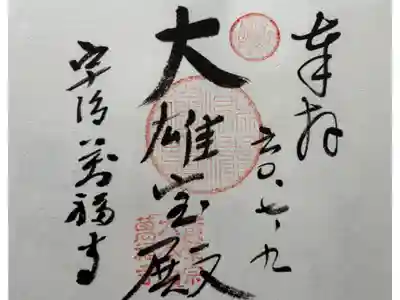 奉拝
六〇、七、九
大雄宝殿
宇治萬福寺